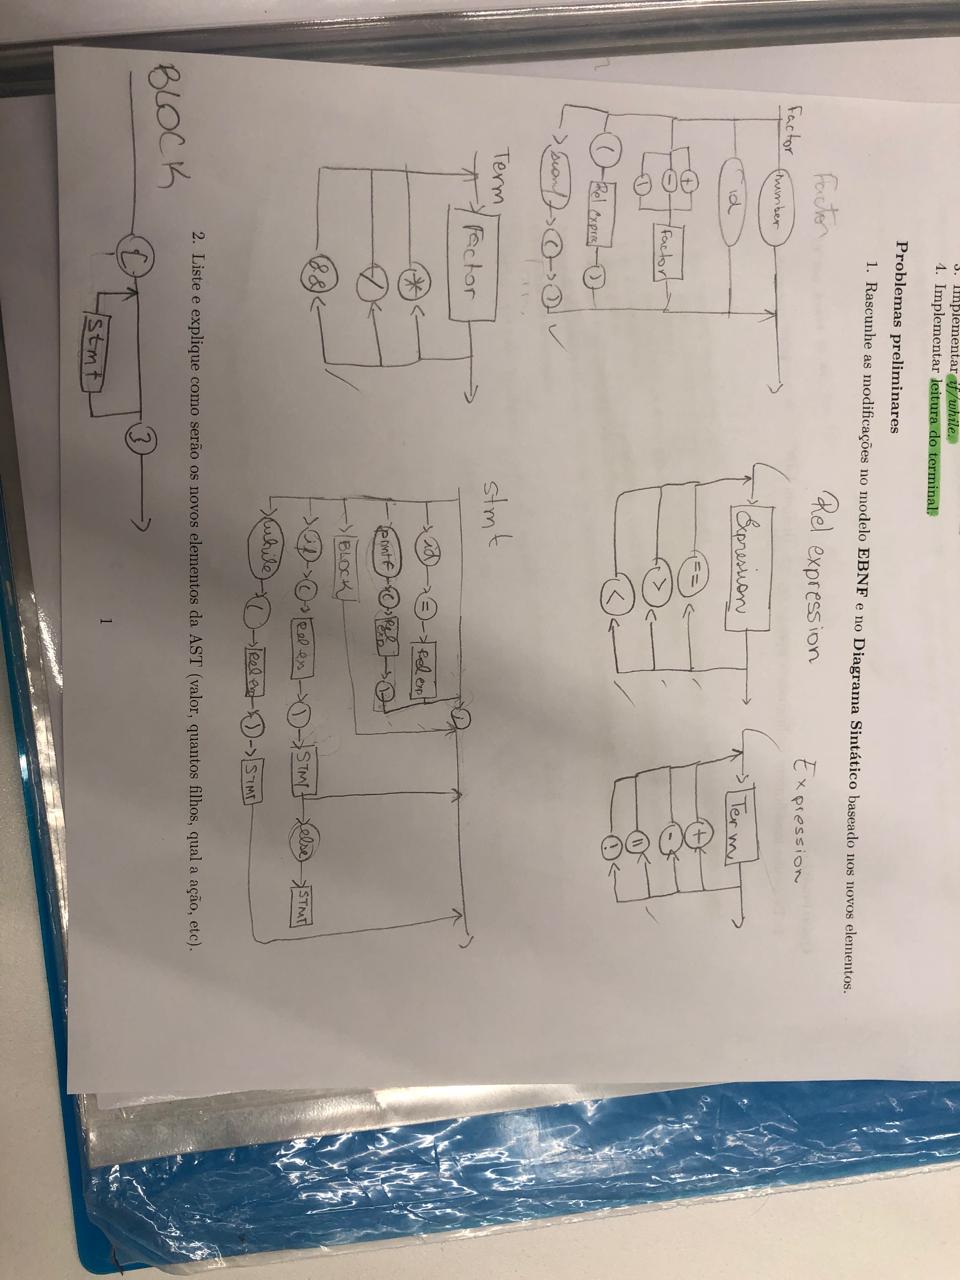 3. Implementar if/while.
4. Implementar leitura do terminal.
Problemas preliminares
1. Rascunhe as modificações no modelo EBNF e no Diagrama Sintático baseado nos novos elementos.
Factor
Factor number
id
+
-
!
Factor
( Rel expres )
scanf ( )
Rel expression
Expression
==
>
<
Expression
Term
+
-
||
!
Term
Factor
*
/
&&
stmt
;
id = Rel exp
printf ( Rel exp )
BLOCK
if ( Rel ex ) STMT else STMT
while ( Rel ex ) STMT
2. Liste e explique como serão os novos elementos da AST (valor, quantos filhos, qual a ação, etc).
BLOCK
{ }
stmt
1